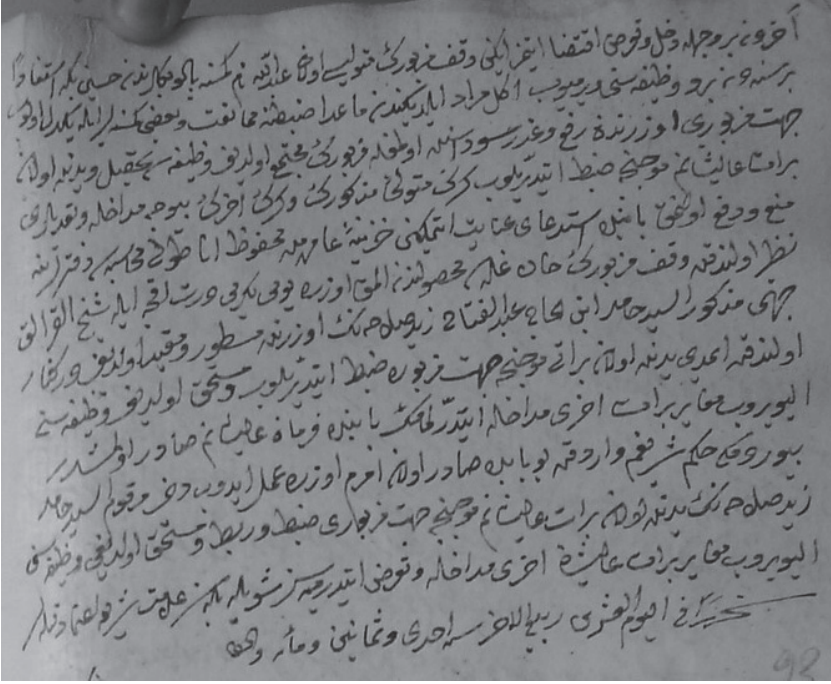 آخردن بر وجهله دخل و تعرض اقتضا ايتمز ايكن وقف مزبورك متوليسى اولان
برسنه دن برو وظيفه سنى ويرميوب اكل مراد ايلديكندن ماعدا ضبطنه ممانعت وبعضى كسنه لر ايله
جهت مزبورى اوزرندن رفع وغدر اولمغله مزبورك مجتمع اولديغى وظيفه سى تحصيل ويدنده اولان
برات عاليشانم موجبنجه ضبط ايتديريلوب كرك متولئ مذكورك وكرك آخرك بيوجه مداخله وتعديلرى
منع ودفع اولنمق بابنده استدعاى عنايت ايتمكين خزينۀ عامره مده محفوظ اناطولى محاسبه سى دفترلرينه
نظر اولندقده وقف مزبورك محصولندن المق اوزره يومى يكرمى درت اقچه ايله شيخ القرالق
جهتى مذكور السيد حامد ابن الحاج عبد الفتاح زيد صلاحه نك اوزرنده مسطور ومقيد اولديغى دركنار
اولندقده ايمدى يدنده اولان براتى موجبنجه جهت مزبوره ضبط ايتديريلوب ومستحق اولديغى وظيفه سنى
اليويروب مغاير برات آخرى مداخله ايتدرلمامك بابنده فرمان عاليشانم صادر اولمشدر
بيوردم كه حكم شريفم واردقده بو بابده صادر اولان امرم اوزره عمل ايدوب دخى مرقوم السيد حامد
زيد صلاحه نك يدنده اولان برات عاليشانم موجبنجه جهت مزبورى ضبط وربط ومستحق اولديغى وظيفه سنى
اليويروب مغاير برات عاليشان آخرى مداخله وتعرض ايتدرميه سز شويله بيله سز علامت شريفه اعتماد قيله سز
تحريرا فى اليوم العشرين ربيع الاخر سنه احدى وثمانين ومائه والف